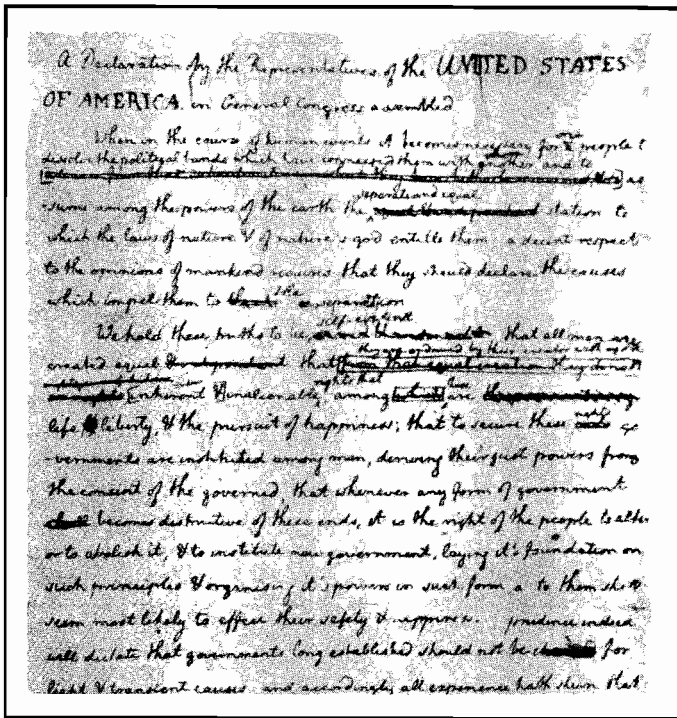 A Declaration by the Representatives of the UNITED STATES
OF AMERICA, in General Congress assembled
When in the course of human events it becomes necessary for one people t
dissolve the political bands which have connected them with another, and to
as
separate and equal
-sume among the powers of the earth the station to
which the laws of nature & of nature's god entitle them a decent respect
to the opinions of mankind requires that they should declare the causes
which impel them to the separation
self-evident
We hold these truths to be that all men are
they are endowed by their creator with
created equal & independent that from that equal creation they
rights that
inherent & inalienable among which are
life & liberty, & the pursuit of happiness; that to secure these
-vernments are instituted among men, deriving their just powers from
the consent of the governed, that whenever any form of government
shall becomes destructive of these ends, it is the right of the people to alter
or to abolish it, & to institute new government, laying it's foundation on
such principles & organising it's powers in such form, a to them sh
seem most likely to effect their safety & happiness. prudence indeed
will dictate that governments long established should not be for
light & transient causes and accordingly all experience hath shewn that